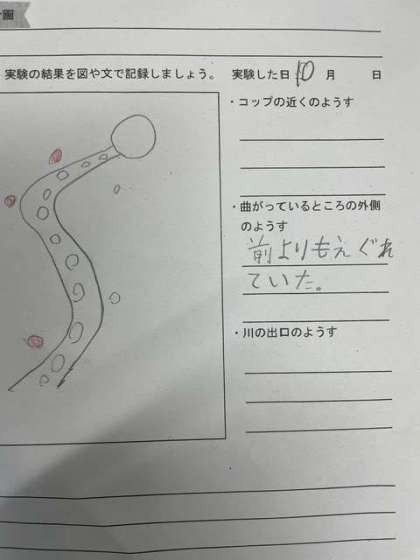 実験の結果を図や文で記録しましょう。 実験した日 10 月 日
・コップの近くのようす
・曲がっているところの外側
のようす
前よりもえぐれ
ていた。
・川の出口のようす